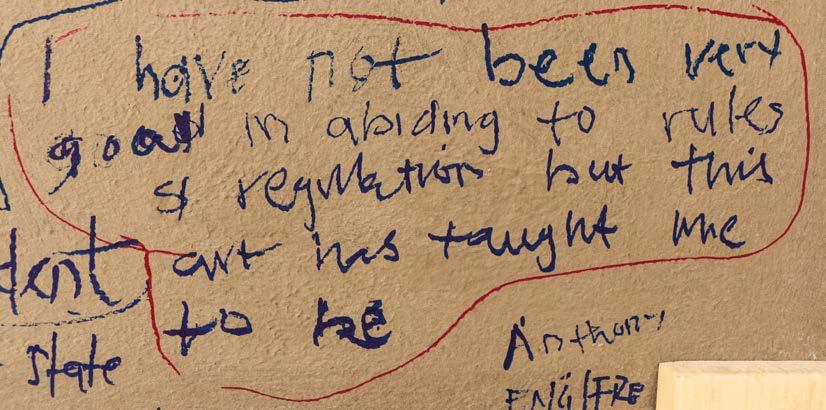 I have not been very
good in abiding to rules
& regulation but this
art has taught me
to be
dent
state
Anthony